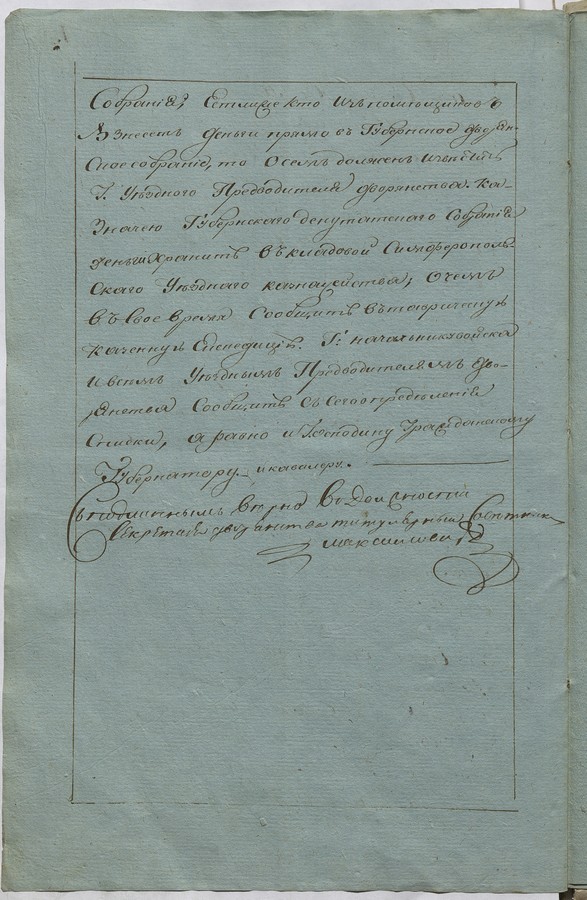 Собранiѣ; Естлиже кто изъ помѣщиковъ
Взнесетъ деньги прямо въ Губернское дворян-
ское собранiе, то о семъ должен извѣстить
Г. Уѣзднаго Предводителя дворянства. Ка-
Значею Губернскаго депутатскаго Собранiя
деньги хранить въ кладовой Симферополь-
скаго Уѣзднаго казначейства; о чемъ
въ свое время Сообщить въ таврическую
казенную Експедицiю. Г: начальникъ войска
и всемъ Уѣзднымъ Предводителямъ дво-
рянства Сообщить съ сего определенiя
Списки, а равно и Господину Гражданскому
Губернатору и кавалеру.
Съ подлиннымъ вѣрно Въ Должности
Секретаря дворянства титулярный Советник
Максимович